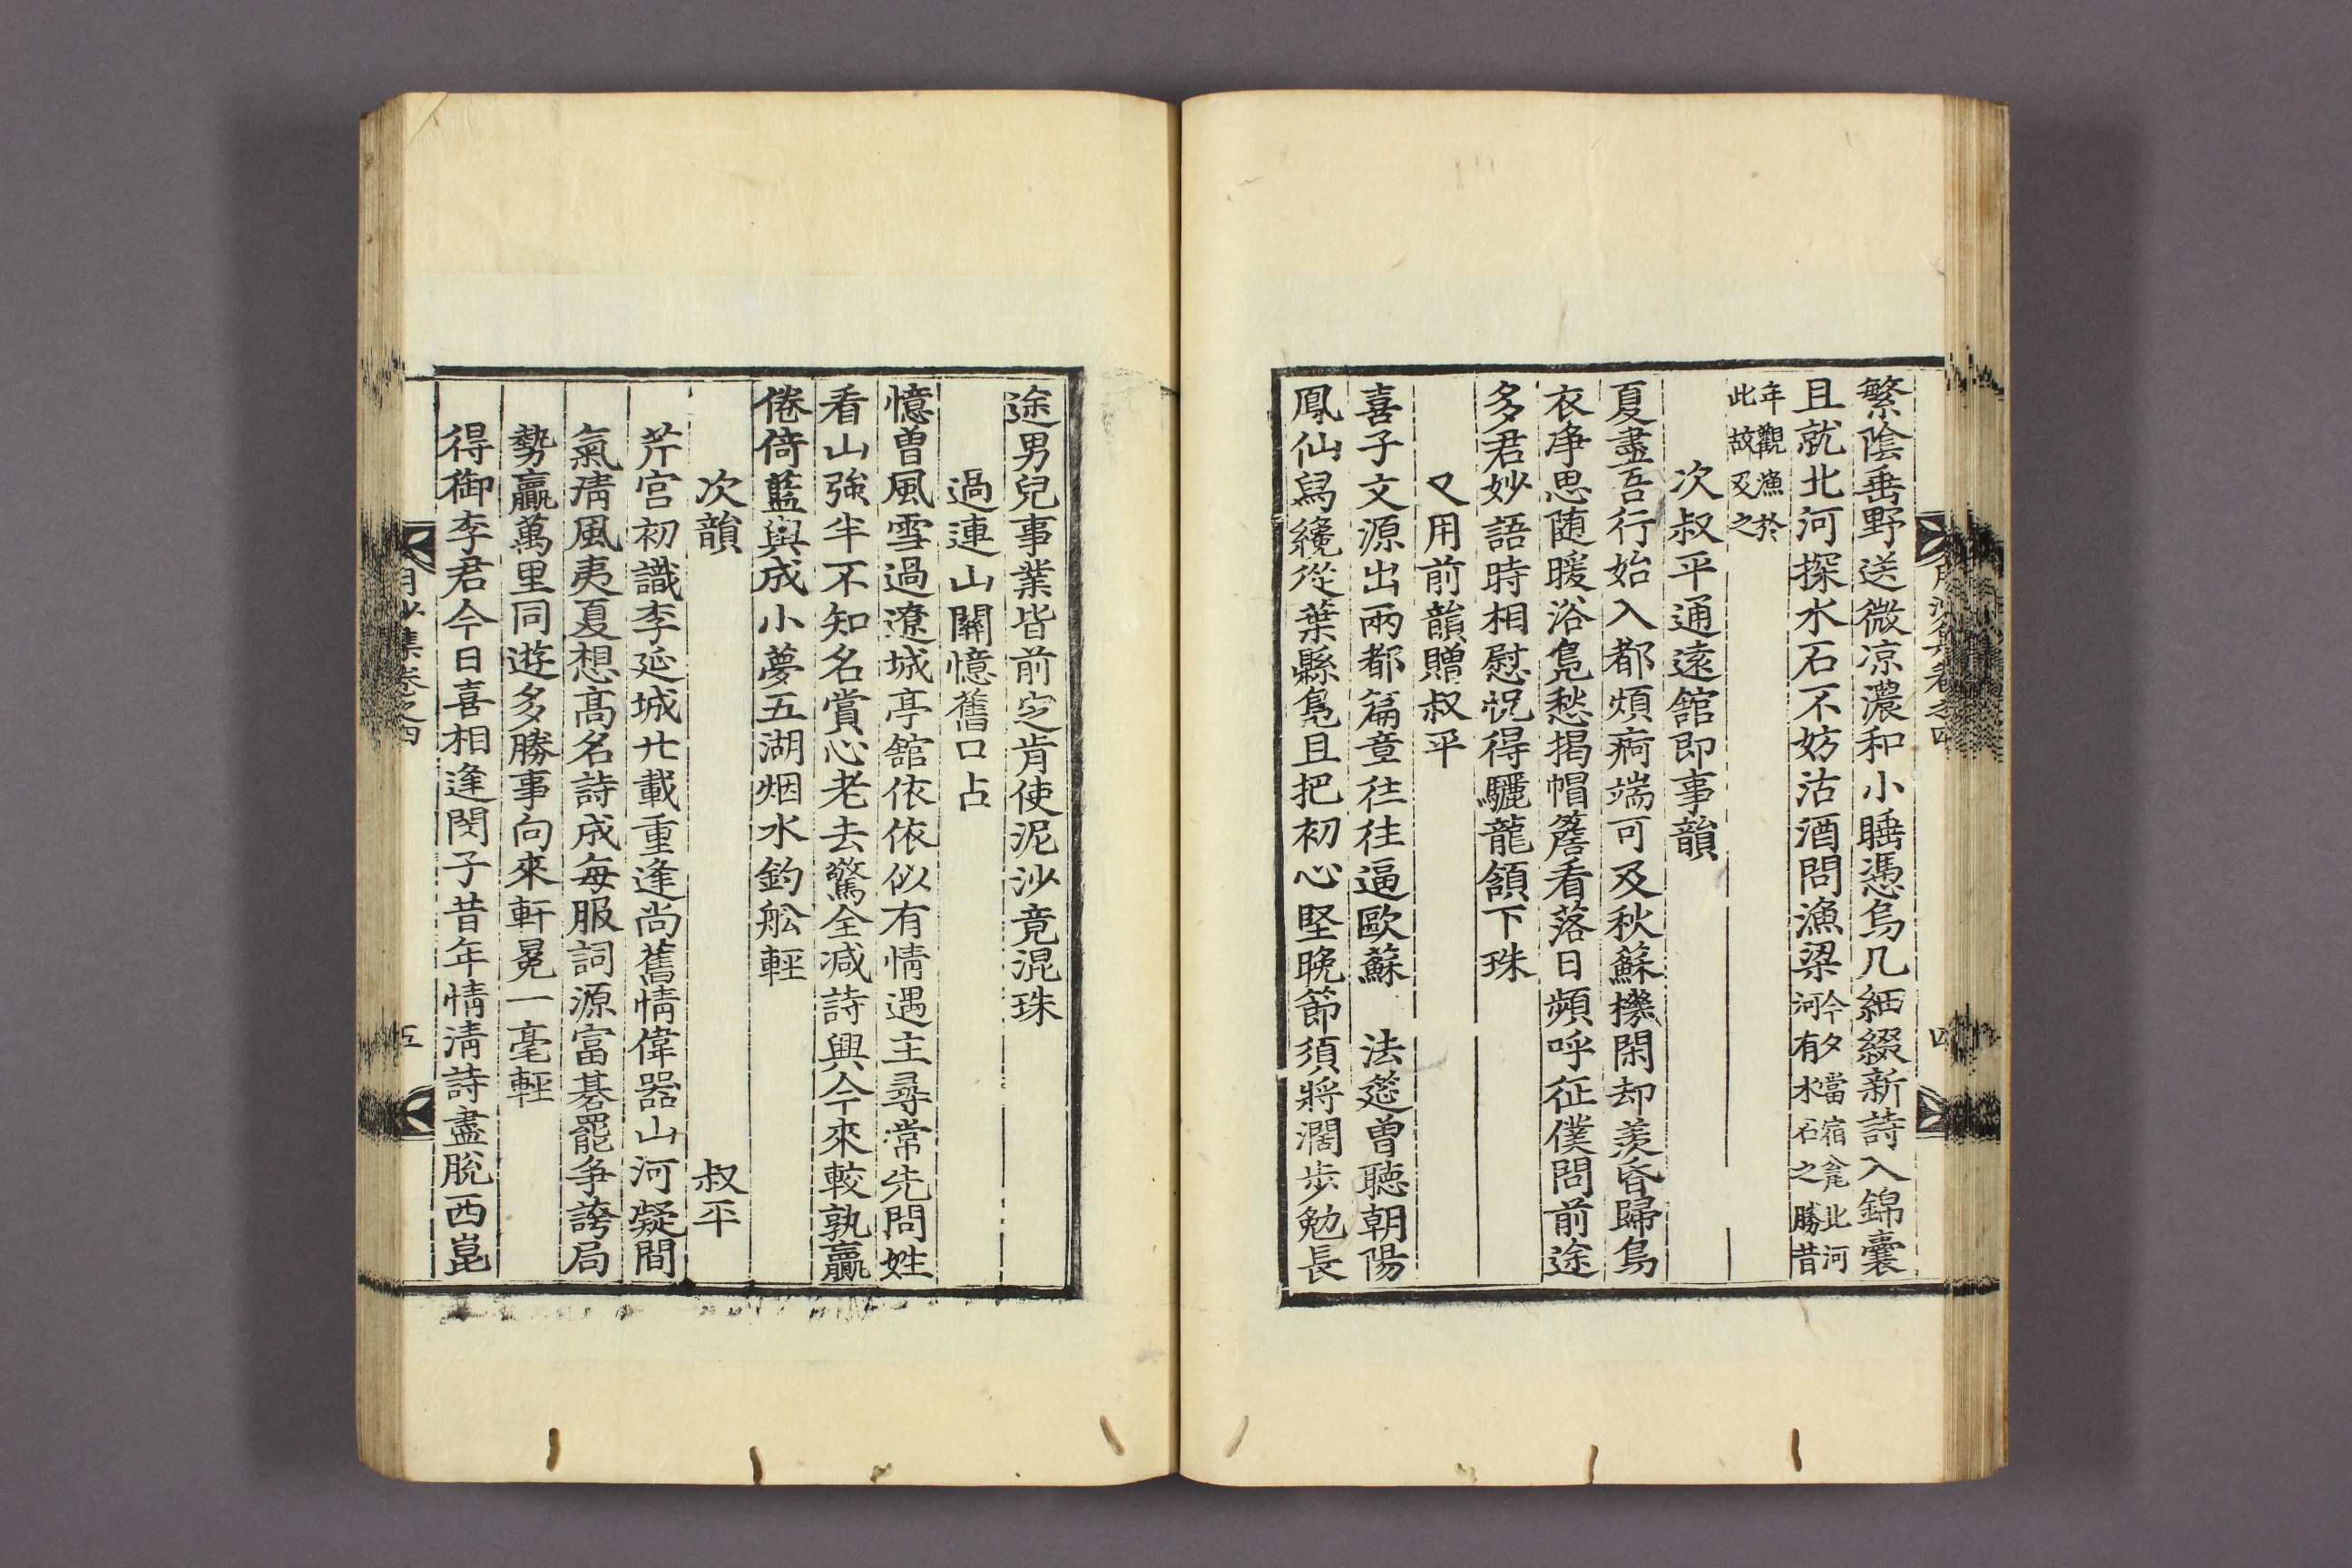 繁陰垂野送微凉濃和小睡憑烏几細綴新詩入錦囊
且就北河探水石不妨沽酒問漁梁今夕當宿龕北河河有水石之勝昔
年觀漁於此故及之
次叔平通遠舘即事韻
夏盡吾行始入都煩痾端可及秋蘇機閑却羡昏歸鳥
衣净思随暖浴鳬愁揭帽簷看落日頻呼征僕問前途
多君妙語時相慰怳得驪龍頷下珠
又用前韻贈叔平
喜子文源出兩都篇章往往逼歐蘇 法筵曾聽朝陽
鳳仙舃纔從葉縣鳬且把初心堅晚節須將濶步勉長
途男兒事業皆前定肯使泥沙竟混珠
過連山關憶舊口占
憶曾風雪過遼城亭舘依依似有情遇主尋常先問姓
看山強半不知名賞心老去驚全减詩興今來較孰贏
倦倚藍輿成小夢五湖烟水釣舩輕
次韻 叔平
芹宮初識李延城廿載重逢尚舊情偉器山河凝間
氣淸風夷夏想高名詩成每服詞源富碁罷争誇局
勢贏萬里同遊多勝事向來軒冕一毫輕
得御李君今日喜相逢閔子昔年情淸詩盡脫西崑
月沙集卷之四 四
月沙集卷之四 五